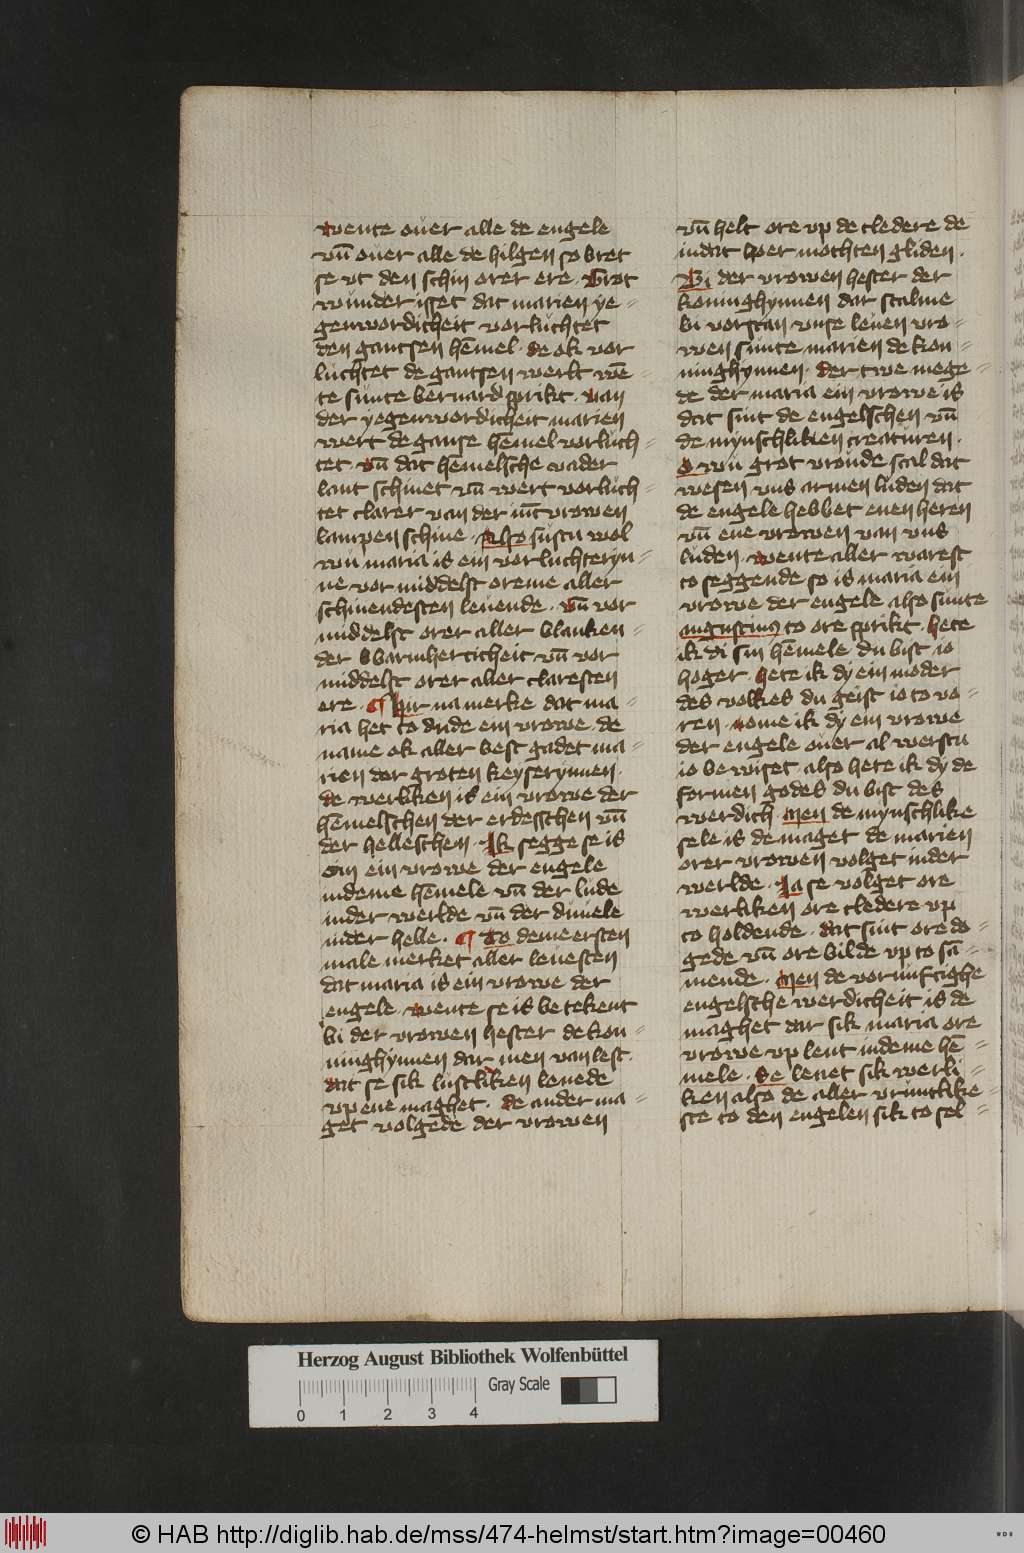 wente ouer alle de engele
vn̄ ouer alle de hilgen so bret
se vt den schin orer ere. Grot
wunder isset dat marien ye=
genwordicheit vorluchtet
den gantsen hēmel. de ok vor
luchtet de gantsen werlt wē=
te sunte bernard sprikt. van
der yegenwordicheit marien
wert de ganse hēmel vorluch=
tet vn̄ dat hemelsche vader
lant schinet vn̄ wert vorluch=
tet clarer van der vrowen
lampen schine. Also sustu wol
wu maria is ein vorluchteryn=
ne vor middelst oreme aller
schinendesten leuende. vn̄ vor
middelst orer aller blanken=
der barmherticheit vn̄ vor
middelst orer aller claresten
ere. ¶ Hir na merke dat ma=
ria het to dude ein vrowe. de
name ok aller best gadet ma=
rien der groten keyserynnen.
de werliken is ein vrowe der
hēmelschen der erdesschen vn̄
der helleschen. Ik segge se is
ein vrowe der engele
indeme hēmele vn̄ der lude
inder werlde vn̄ der duuele
inder helle. ¶ To deme ersten
male merket aller leuesten
dat maria is ein vrowe der
engele. wente se is be tekent
bi der vrowen hester de kon=
ninghynnen dar men van lest.
dat se sik lustliken lenede
vp ene maghet. de ander ma=
get volgede der vrowen
vn̄ helt ore vp de cledere de
indat hoer mochten gliden.
Bi der vrowen hester der
koninghynnen dar scalme
bi vorstan vnse leuen vro=
wen sunte marien de kon=
ninghynnen. der twe mege=
de der maria ein vrowe is
dat sint de engelschen vn̄
de mynschliken creaturen.
O wu grot vroude scal dat
wesen vns armen luden dat
de engele hebbet enen heren
vn̄ ene vrowen van vns
luden. wente aller warest
to seggende so is maria ein
vrowe der engele also sunte
augustinus to ore sprikt. hete
ik di sin hēmele du bist io
hoger. hete ik dy ein moder
des volkes du geist io to vo=
ren. nome ik dy ein vrowe
der engele ouer al werstu
io be wiset. also hete ik dy de
formen godes du bist des
werdich. Men de mynschlike
sele is de maget de marien
orer vrowen volget inder
werlde. Ja se volget ore
werliken ore cledere vp
to holdende. dat sint ore do=
gede vn̄ ore bilde vp to sā=
mende. Men de vornuftighe
engelsche werdicheit is de
maghet dar sik maria ore
vrowe vp lent indeme hē=
mele. Se lenet sik werli=
ken also de aller vruntlike=
ste to den engelen sik to sel=
Herzog August Bibliothek Wolfenbüttel
Gray Scale
0 1 2 3 4
© HAB http://diglib.hab.de/mss/474-helmst/start.htm?image=00460